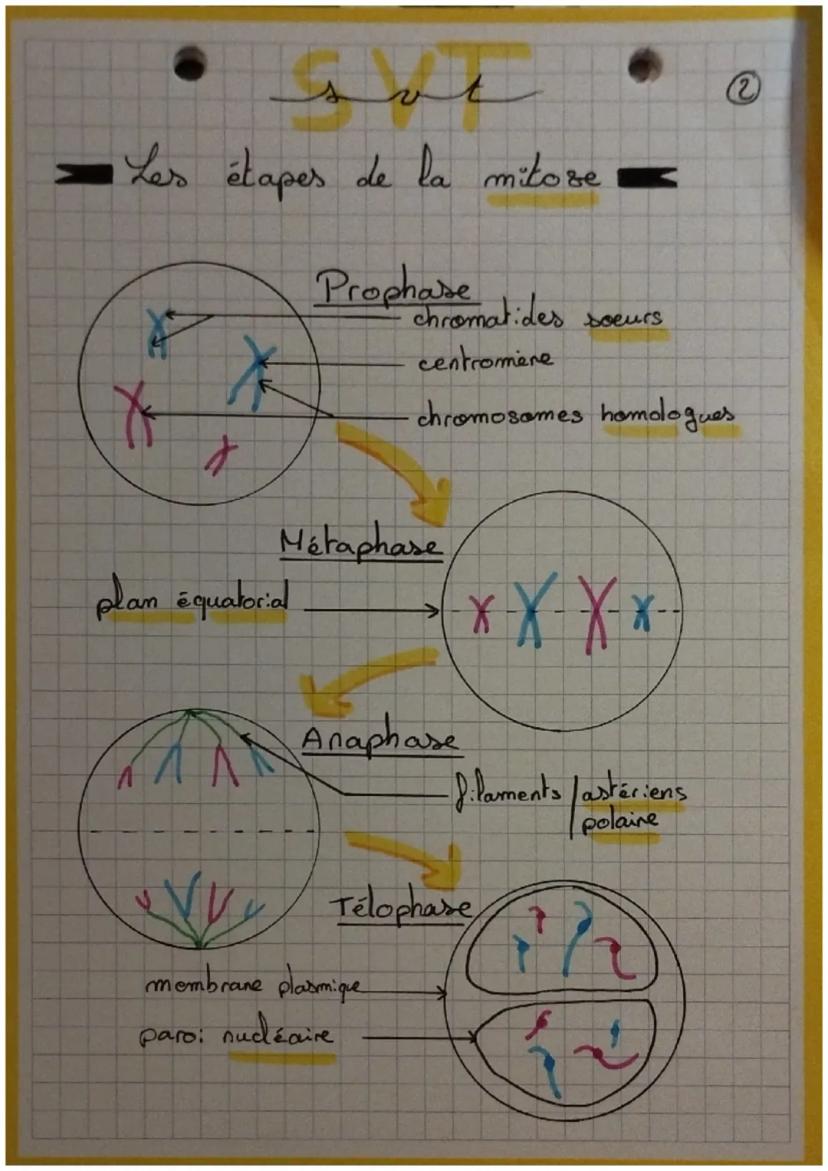 SVT
svt
②
Les étapes de la mitose
Prophase
chromatides soeurs
centromère
chromosomes homologues
Métaphase
plan équatorial
Anaphase
filaments / astériens
polaire
Télophase
membrane plasmique
paroi nucléaire